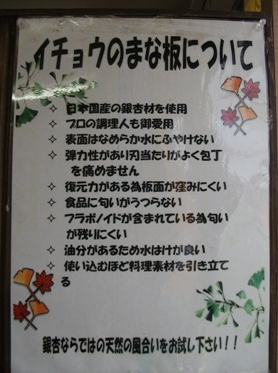 イチョウのまな板について
✧ 日本国産の銀杏材を使用
✧ プロの調理人も御愛用
✧ 表面はなめらか水にふやけない
✧ 弾力性があり刃当たりがよく包丁
を痛めません
✧ 復元力がある為板面が窪みにくい
✧ 食品に匂いがうつらない
✧ フラボノイドが含まれている為匂い
が残りにくい
✧ 油分があるため水はけが良い
✧ 使い込むほど料理素材を引き立て
る
銀杏ならではの天然の風合いをお試し下さい！！